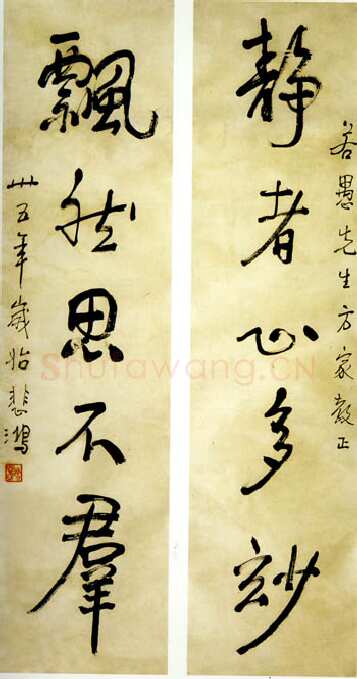 若愚先生方家教正
静者心多妙
飘然思不群
卅五年岁始悲鸿
Shufawang.CN